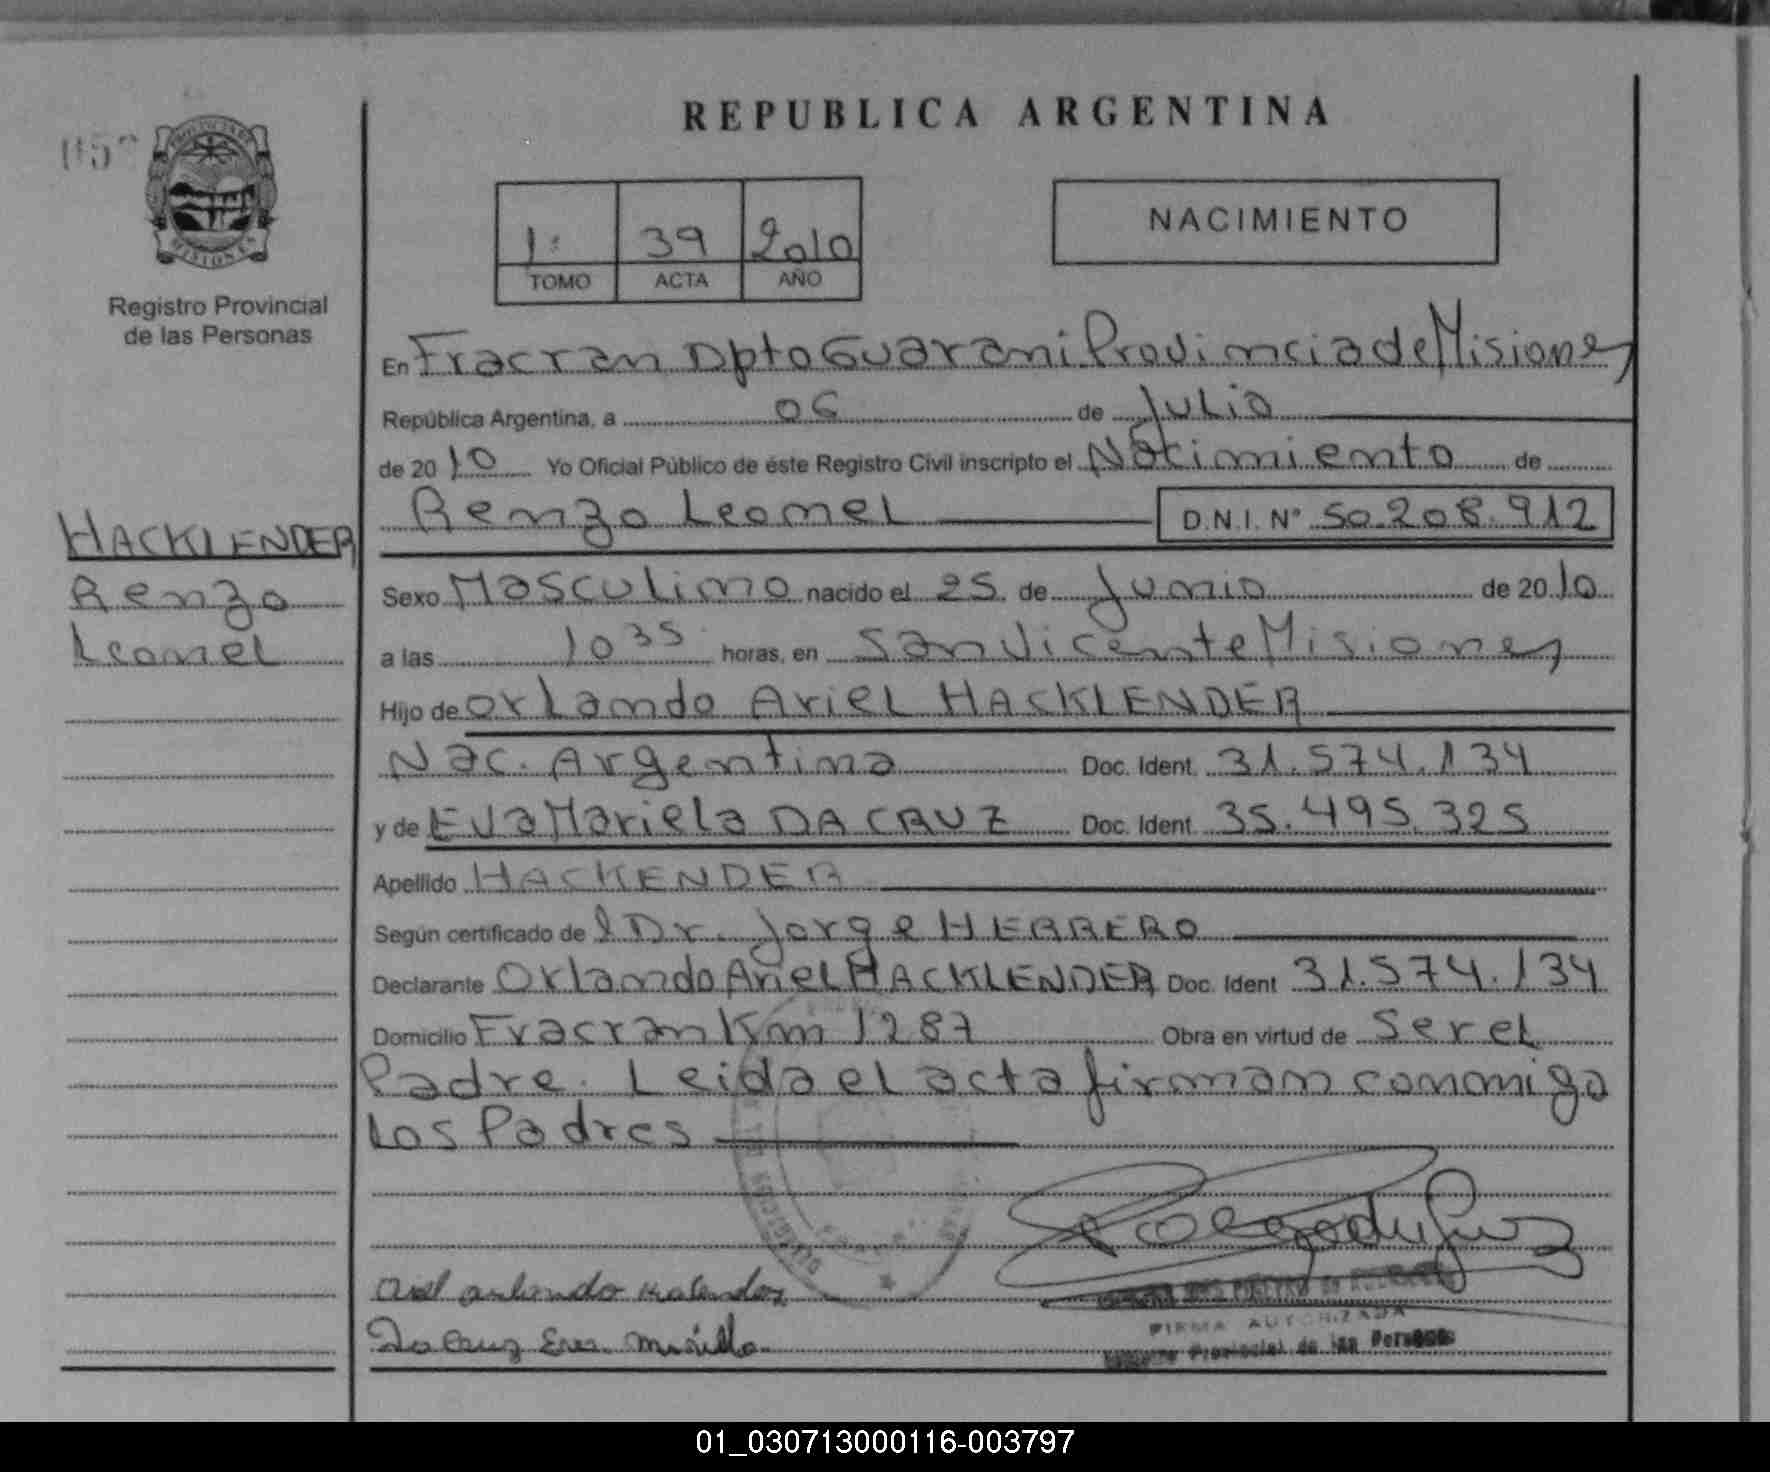 REPUBLICA ARGENTINA
PROVINCIA DE
MISIONES
Registro Provincial
de las Personas
1: 39 2010
TOMO ACTA AÑO
NACIMIENTO
En Fracran Dpto Guarani Provincia de Misiones
República Argentina, a 06 de Julio
de 2010 Yo Oficial Público de éste Registro Civil inscripto el Nacimiento de
Renzo Leonel D.N.I. N° 50.208.912
HACKLENDER
Renzo
Leonel
Sexo Masculino nacido el 25 de Junio de 2010
a las 10 35 horas, en San Vicente Misiones
Hijo de Orlando Ariel HACKLENDER
Nac. Argentina Doc. Ident. 31.574.134
y de Eva Mariela DA CRUZ Doc. Ident. 35.495.325
Apellido HACKENDER
Según certificado de l Dr. Jorge HERRERO
Declarante Orlando Ariel HACKLENDER Doc. Ident 31.574.134
Domicilio Fracran Km 1287 Obra en virtud de Ser el
Padre. Leida el acta firman conmigo
Los Padres
FIRMA AUTORIZADA
Provincial de las Personas
01_030713000116-003797